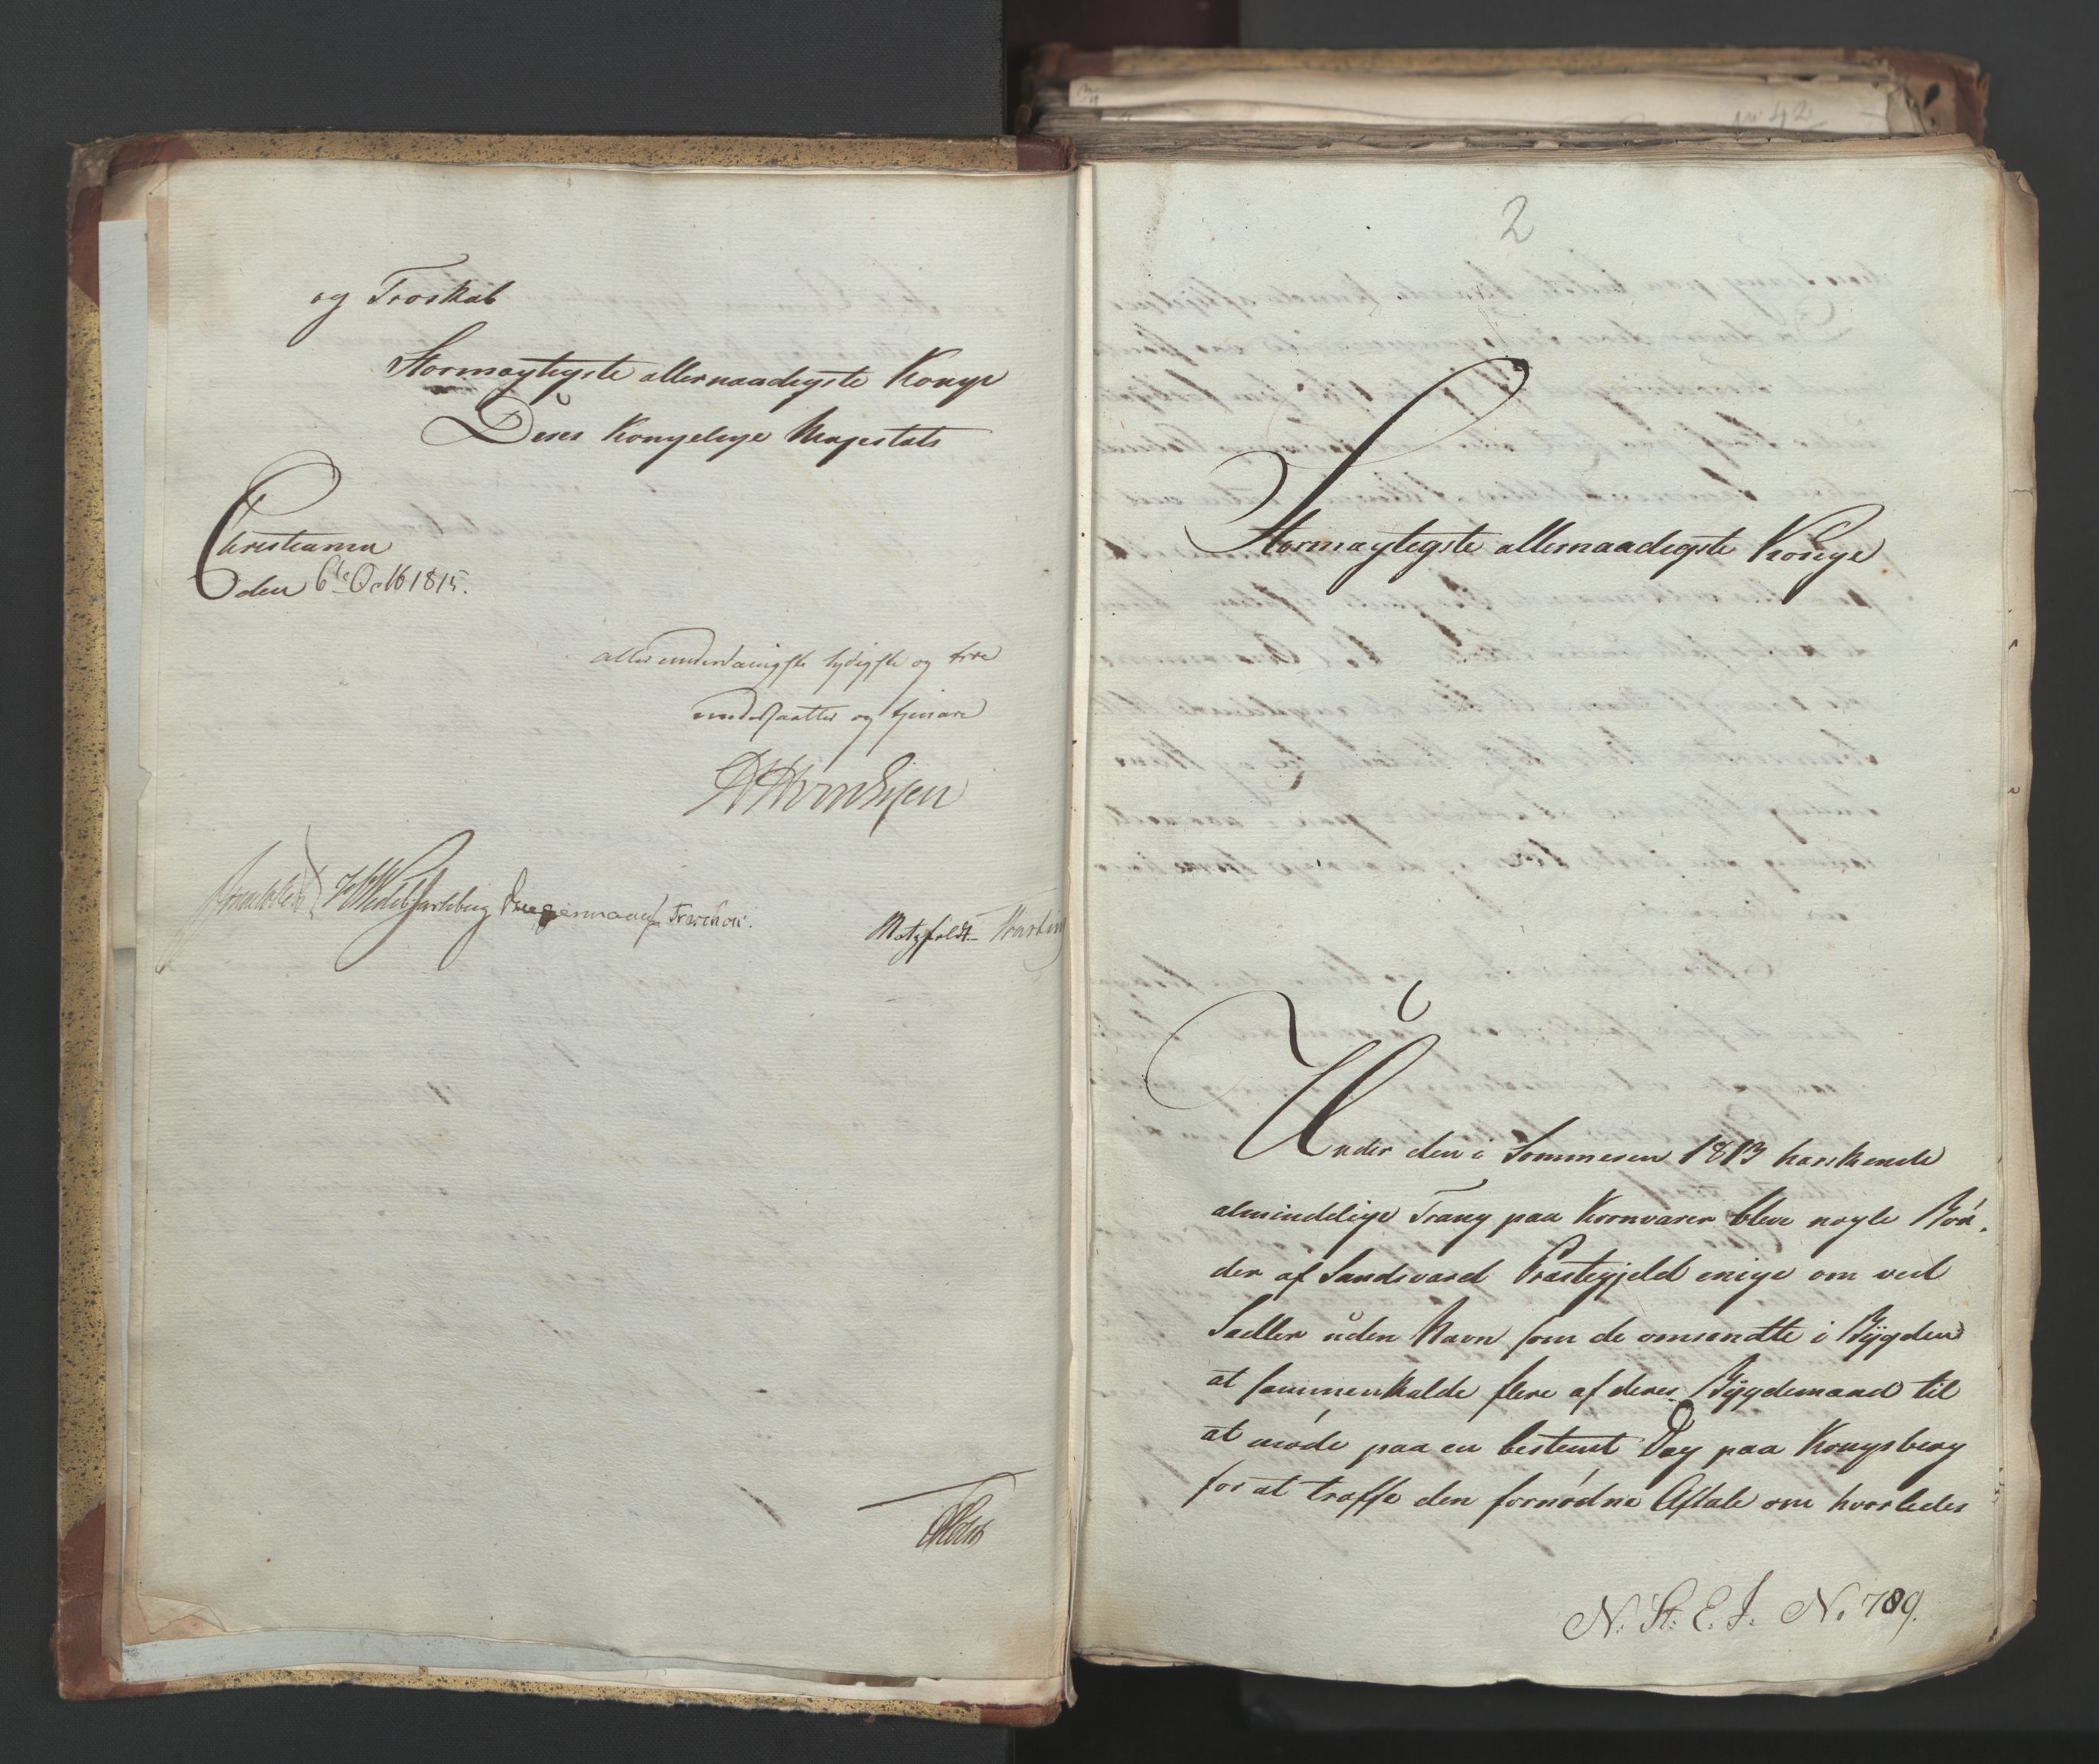 og Troskab
Stormægtigste allernaadigste Konge
Deres Kongelige Majestæts
Christiania
den 6te Octb 1815.
allerunderdanigste lydigste og troe
undersaatter og tjenere
Sommerhjelm
H Wedel Jarlsberg Treschow.
Motzfeldt Hartwig
Holst
2
Stormægtigste allernaadigste Konge
Under den i Sommeren 1813 herskende
almindelige Trang paa Kornvarer bleve nogle Bøn-
der af Sandsværd Præstegjeld enige om ved
Sedler uden Navn som de omsendte i Bygden
at sammenkalde flere af deres Bygdemænd til
at møde paa en bestemt Dag paa Kongsberg
for at træffe den fornødne Aftale om hvorledes
N. St: E. J. No 789.
No 42